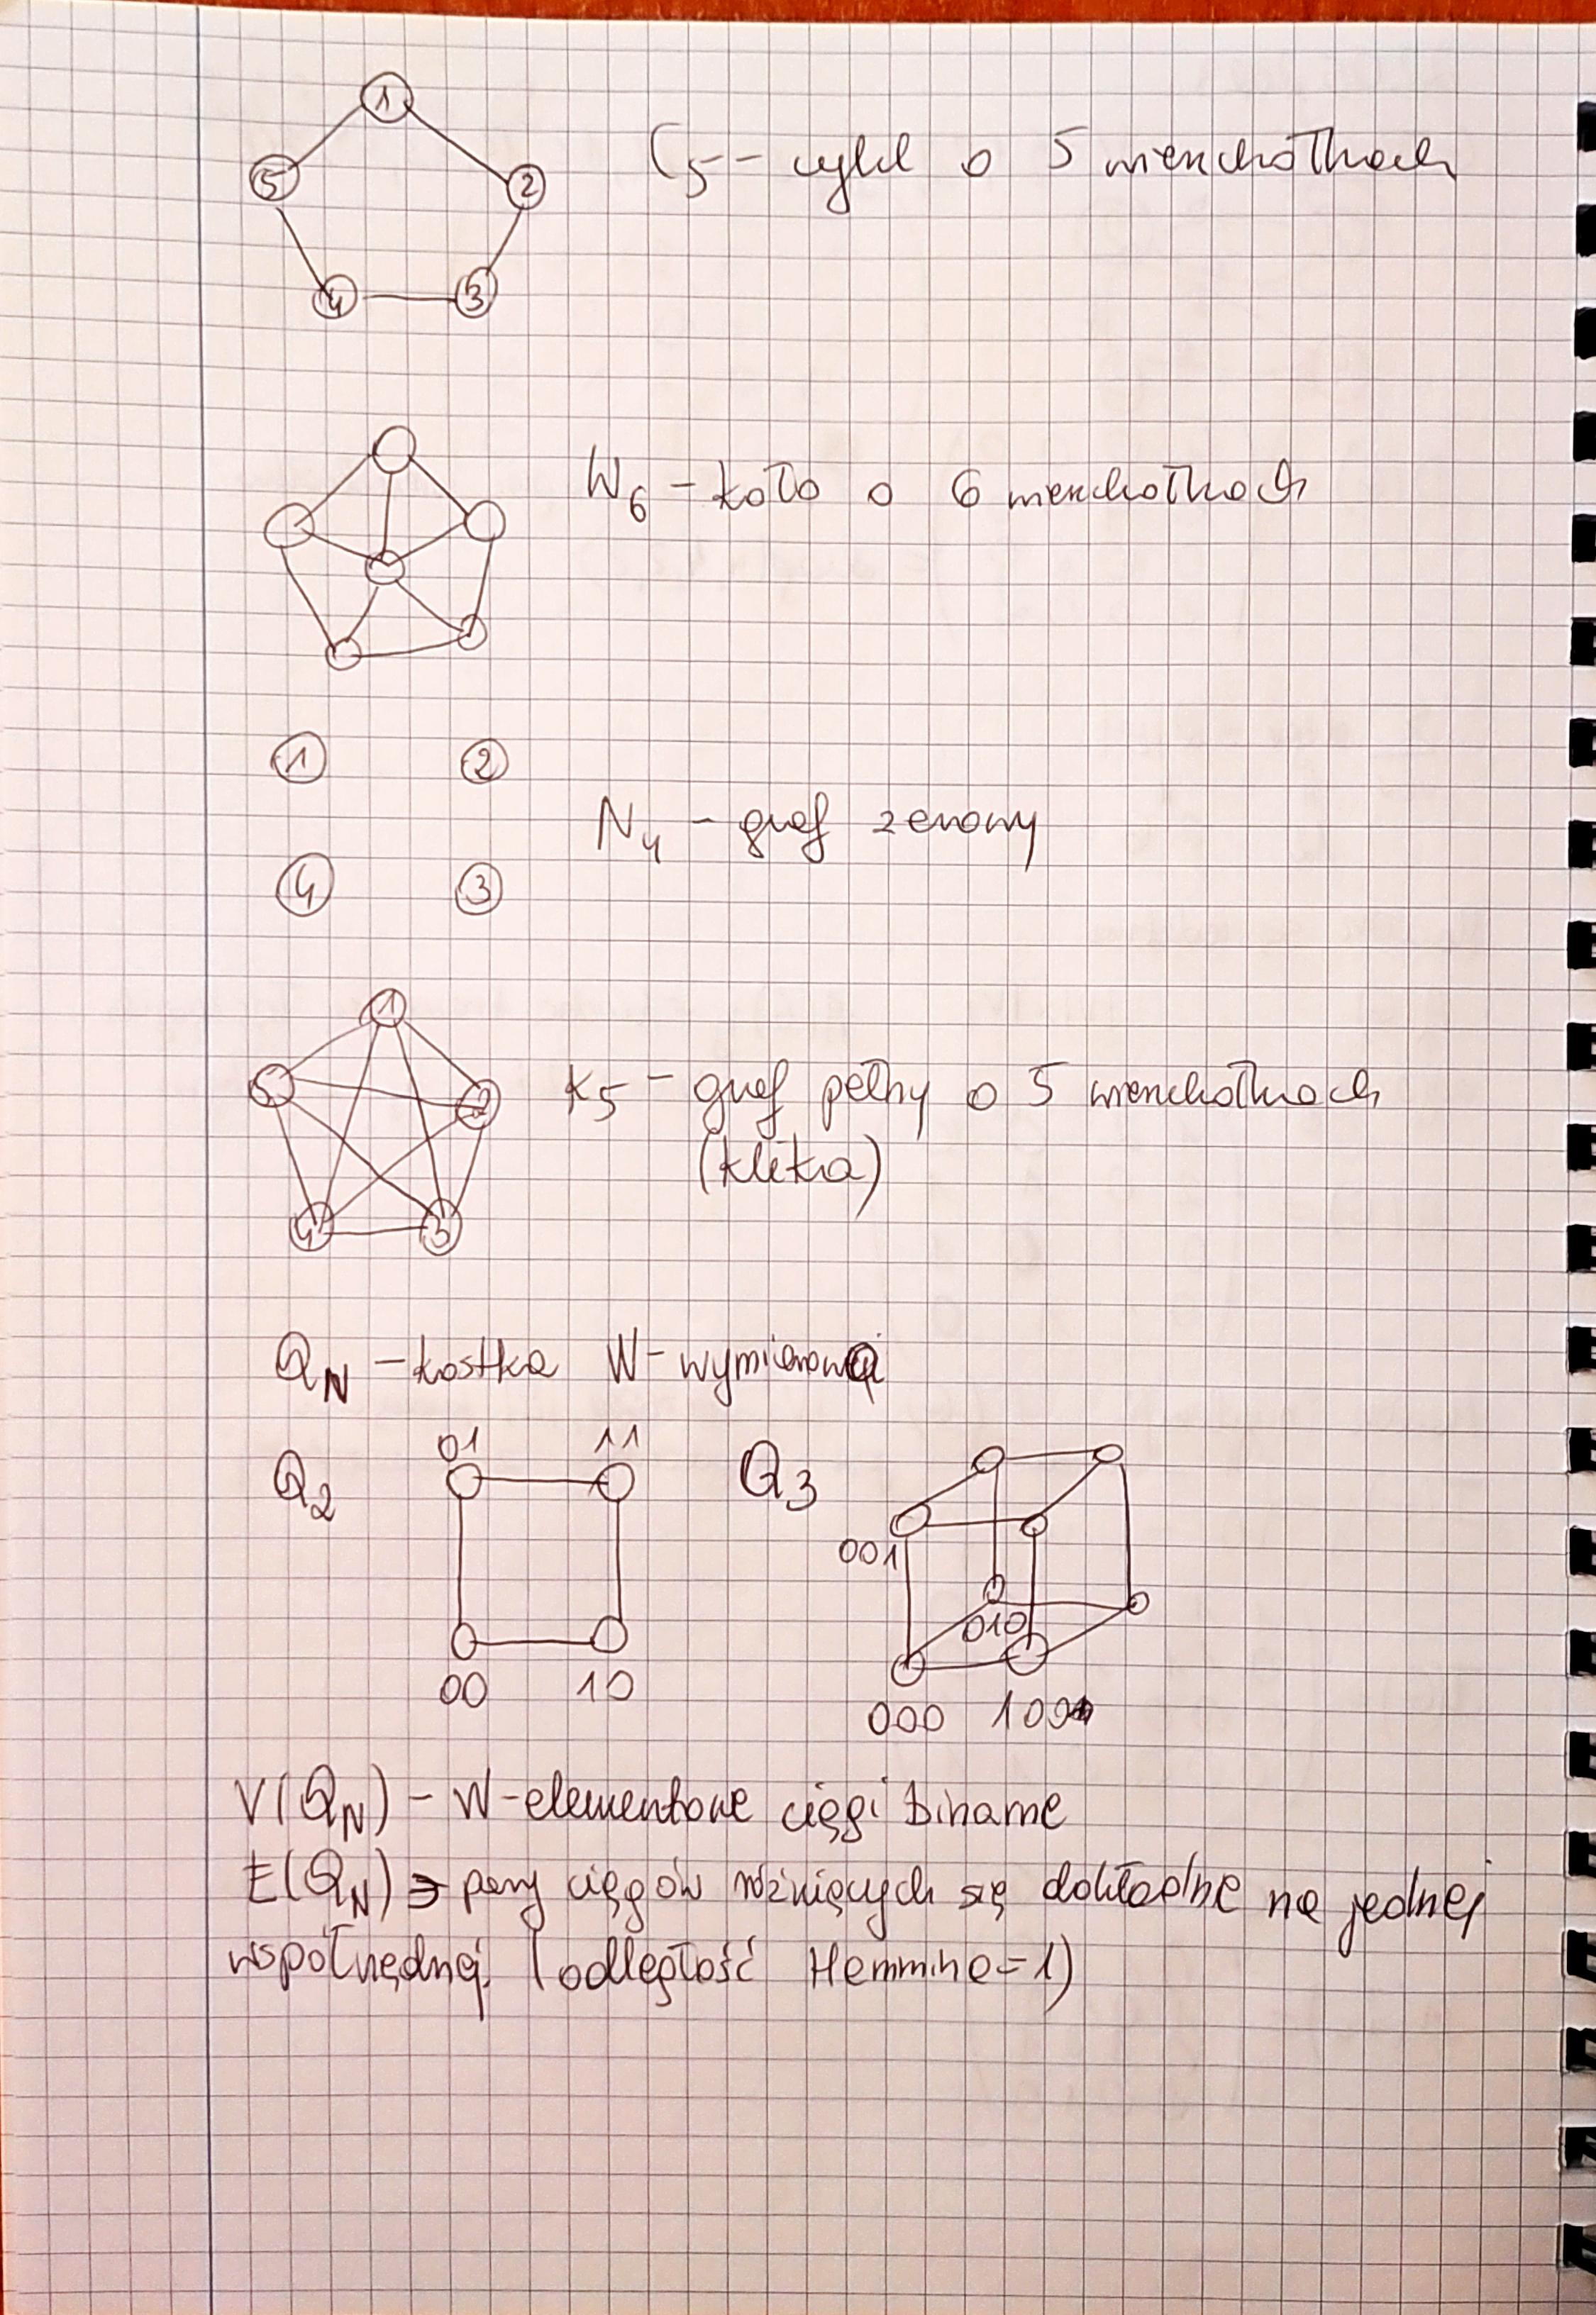 1
5
2
4
3
C5 - cykl o 5 wierzchołkach
W6 - koło o 6 wierzchołkach
1
2
N4 - graf zerowy
4
3
1
5
2
4
3
K5 - graf pełny o 5 wierzchołkach
(klika)
QN - kostka N-wymiarowa
Q2
01
11
00
10
Q3
001
010
000
100
V(QN) - N-elementowe ciągi binarne
E(QN) - pary ciągów różniących się dokładnie na jednej
współrzędnej (odległość Hamminga = 1)